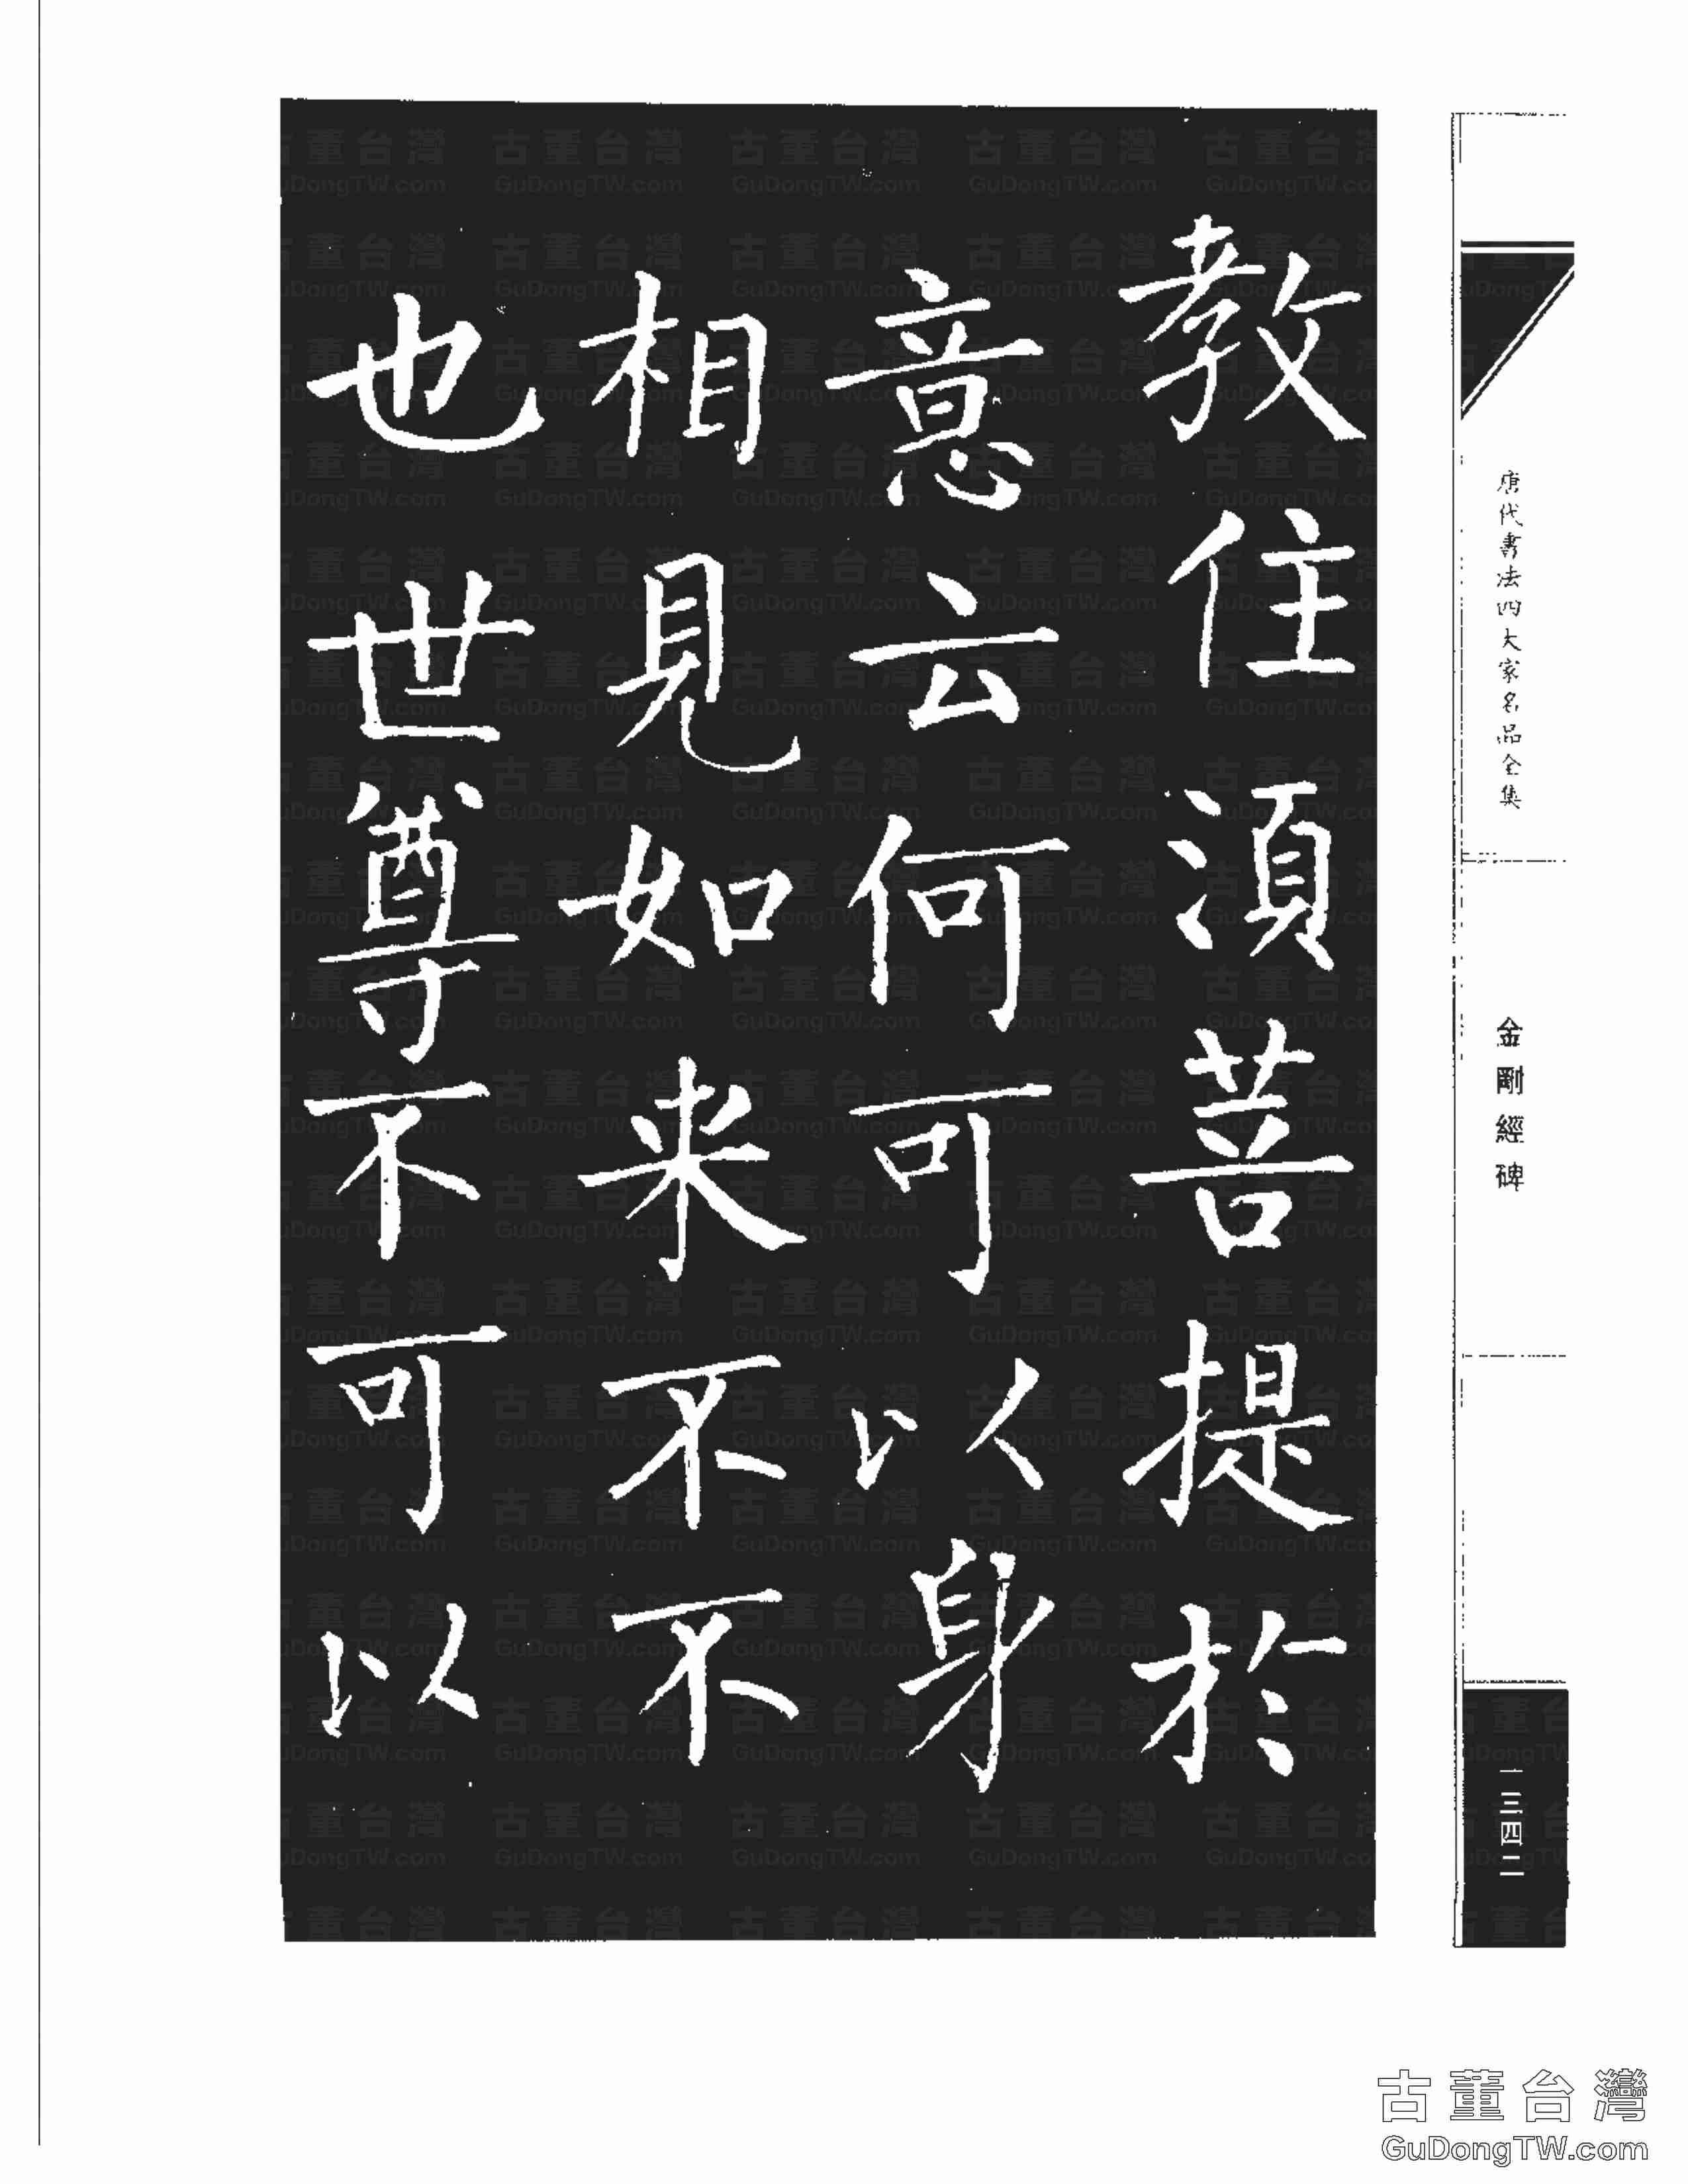 教住須菩提於
意云何可以身
相見如来不不
也世尊不可以
唐代書法四大家名品全集
金剛經碑
一三四二
古董台灣
GuDongTW.com